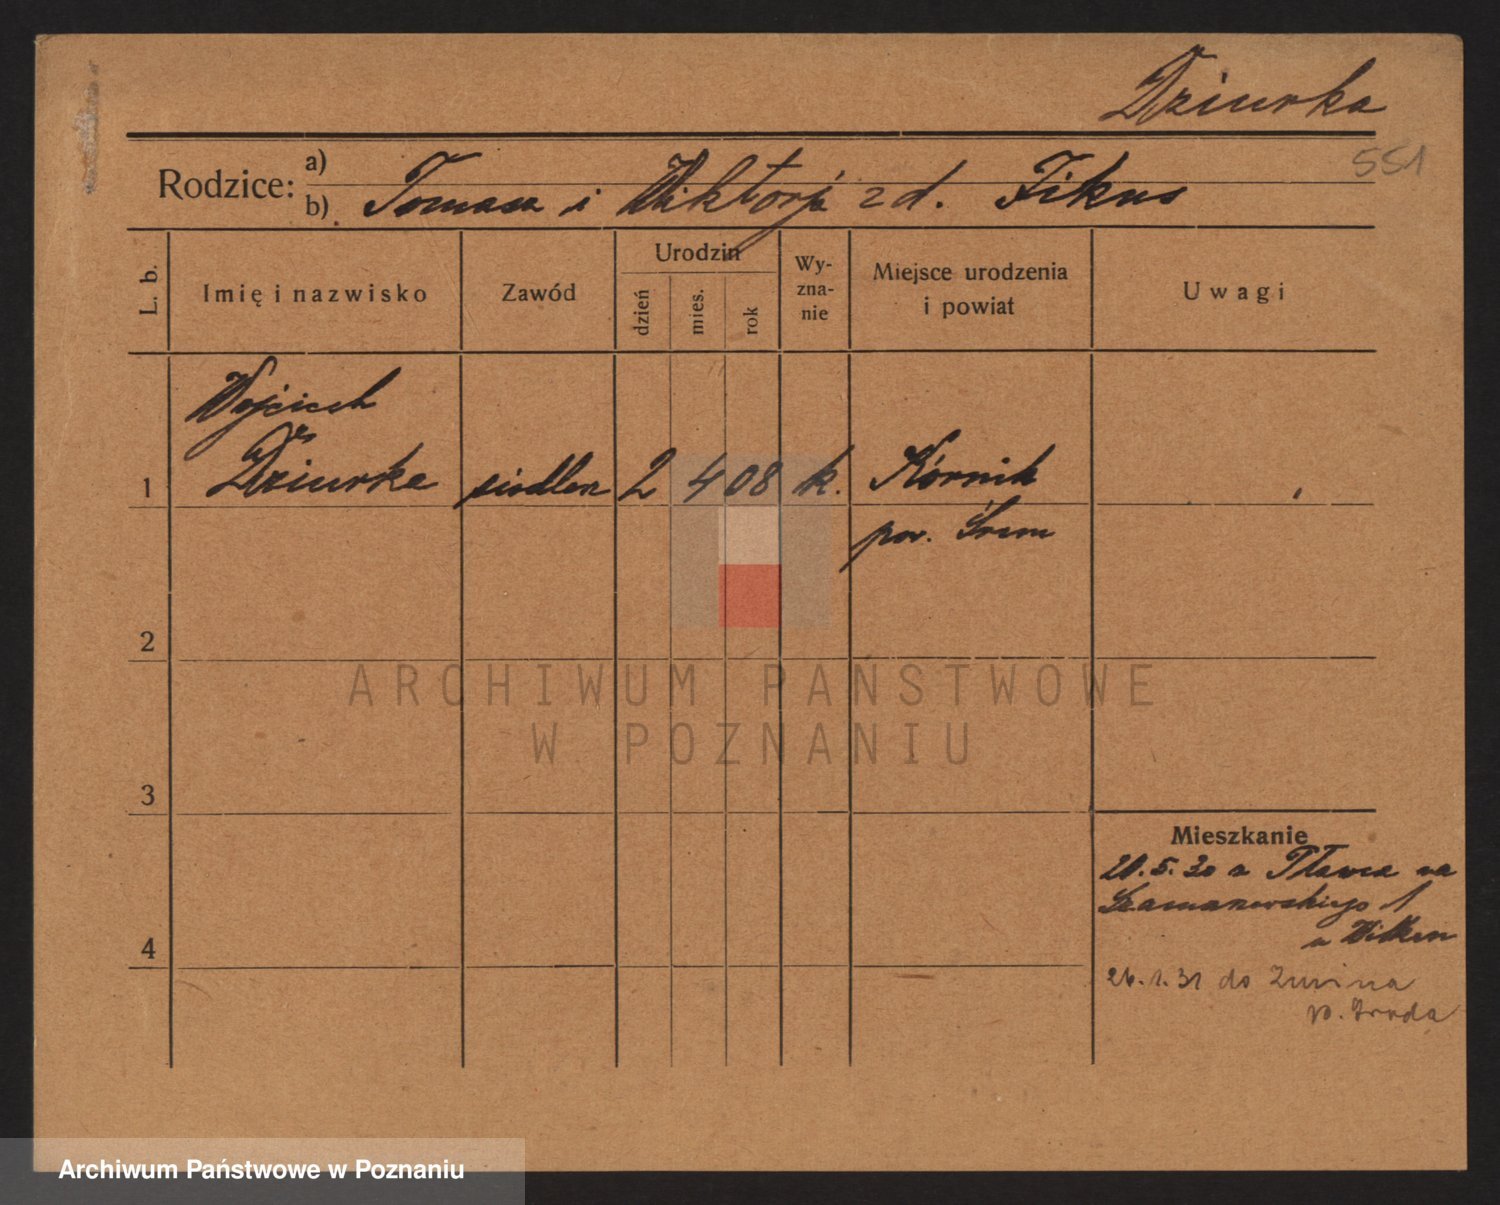 Dziurka
551
Rodzice: a)
b) Tomasz i Wiktorja z d. Fikus
L. b. Imię i nazwisko Zawód Urodzin dzień mies. rok Wyznanie Miejsce urodzenia i powiat Uwagi
Wojciech
1 Dziurka siodlarz 2 4 08 k. Kórnik
pow. Śrem
2
ARCHIWUM PAŃSTWOWE
W POZNANIU
3
Mieszkanie
20.5.30 z na
4
26.1.31 do
Archiwum Państwowe w Poznaniu